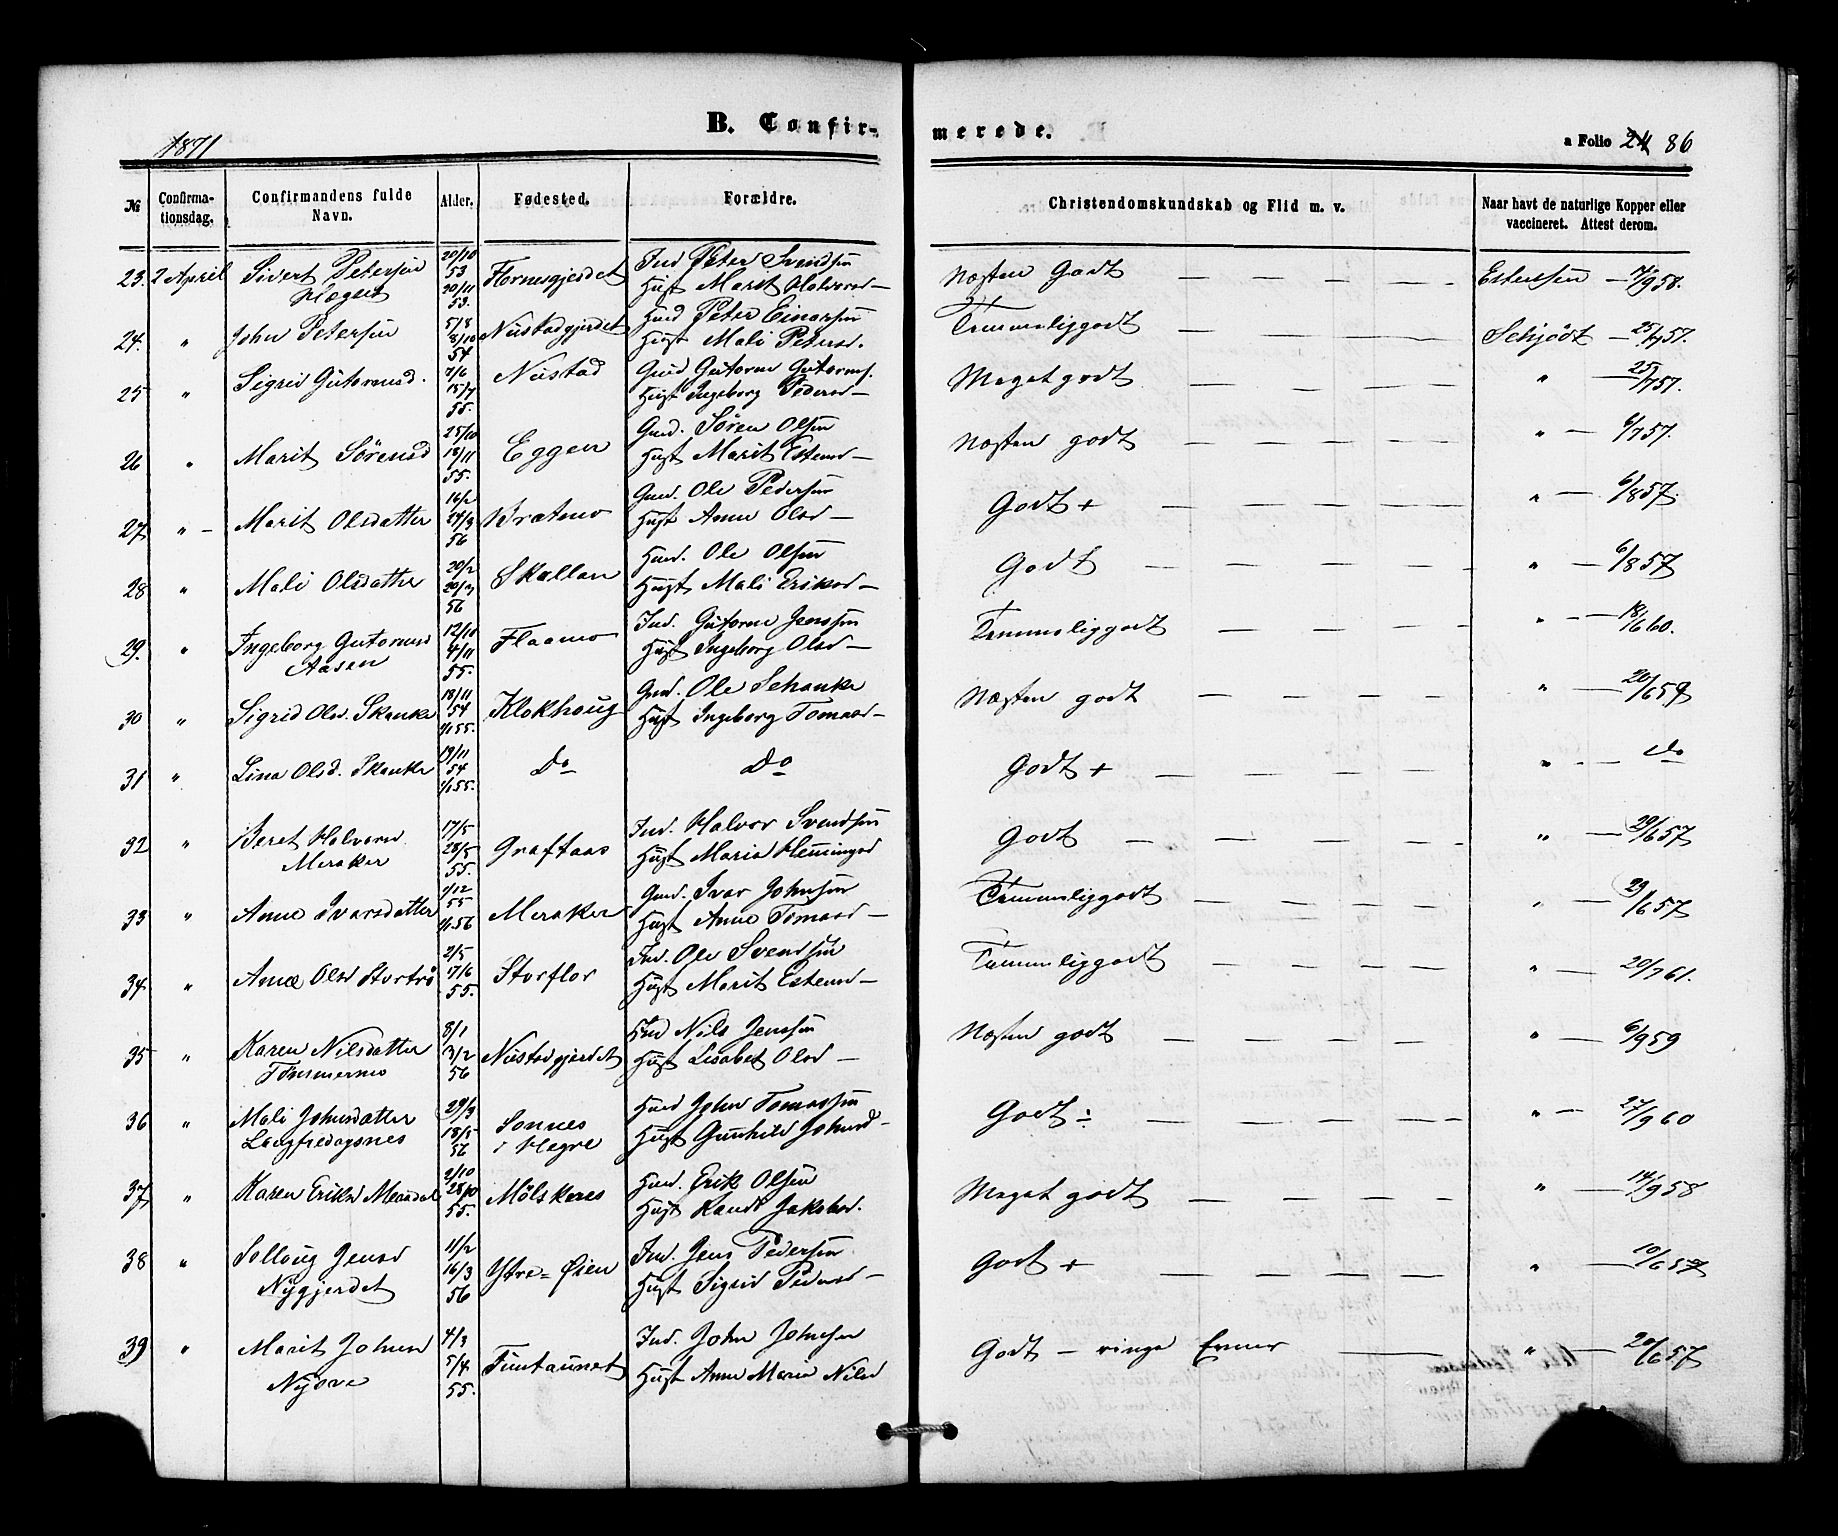 1871
B. Confir-
merede.
a Folio 24 86
№
Confirma-
tionsdag.
Confirmandens fulde
Navn.
Alder.
Fødested.
Forældre.
Christendomskundskab og Flid m. v.
Naar havt de naturlige Kopper eller
vaccineret. Attest derom.
23. 2 April Sivert Petersen 20/10 53 20/11 53. Flornesgjerdet Ind Peter Svendsen
Hust Marit Halvorsd — Næsten Godt — — — — Estensen — 7/9 58.
24. " John Petersen 5/8 8/10 54 Nustadgjerdet Huusd Peter Einarsen
Hust Mali Petersd. Temmeliggodt — — — — Schjødt — 25/7 57.
25 " Sigrid Gutormsd. 7/6 15/7 55. Nustad Gmd Gutorm Gutorms.
Hust Ingeborg Pedersd — Meget godt — — — — " — 25/7 57.
26 " Marit Sørensd 25/10 18/11 55. Eggen Gmd. Søren Olsen
Hust Marit Estensd — Næsten godt — — — — " — 6/7 57.
27 " — Marit Olsdatter 16/2 24/3 56 Bratmo Gmd. Ole Pedersen
Hust Anne Olsd — Godt + — — — — " — 6/8 57.
28 " Mali Olsdatter 20/2 20/3 56 Skallan Husd. Ole Olsen
Hust Mali Eriksd — Godt — — — — — " — 6/8 57
29. " Ingeborg Gutormsd
Aasen 12/10 4/11 55. Flaamo Ind. Gutorm Jensen
Hust Ingeborg Olsd — Temmeliggodt — — — — " — 18/6 60.
30 " Sigrid Olsd. Skanke 18/11 54 1/1 55. Klokhoug Gmd. Ole Schanke
Hust Ingeborg Tomasd — Næsten godt — — — — " — 20/6 57
31 " Lina Olsd. Skanke 19/11 54 1/1 55. Do Do Godt + — — — — " — Do
32 " Beret Halvorsd
Meraker 17/5 28/5 55. Graftaas Ind. Halvor Svendsen
Hust Maria Hemingsd Godt — — — — — " — 29/6 57
33 " Anne Ivarsdatter 1/12 55 1/1 56 Meraker Gmd. Ivar Johnsen
Hust Anne Tomasd — Temmeliggodt — — — — " — 29/6 57
34 " Anne Olsd Stortrø 2/5 17/6 55. Storflor Ind. Ole Svendsen
Hust Marit Estensd — Temmeliggodt — — — — " — 20/7 61.
35 " Karen Nilsdatter
Tømmernes 8/1 3/2 56 Nustadgjerdet Ind Nils Jensen
Hust Lisabet Olsd — Næsten godt — — — — " — 6/9 59
36 " Mali Johnsdatter
Langfredagsnes 29/3 18/5 56 Sonnes
i Hegre Husd John Tomassen
Hust Gunhild Johnsd — Godt ÷ — — — — " — 27/9 60
37 " Karen Eriksd 2/10 28/10 55. Mølskeres Husd. Erik Olsen
Hust Randi Jakobsd. Meget godt — — — — " — 14/9 58
38 " Sollaug Jensd
Nygjerdet 11/2 16/3 56 Ytre=Øien Ind. Jens Pedersen
Hust Sigrid Pedersd — Godt + — — — — " — 10/6 57
39 " Marit Johnsd 4/3 5/4 55. Funtaunet Ind. John Johnsen
Hust Anne Marie Nilsd Godt — ringe Evner — " — 20/6 57